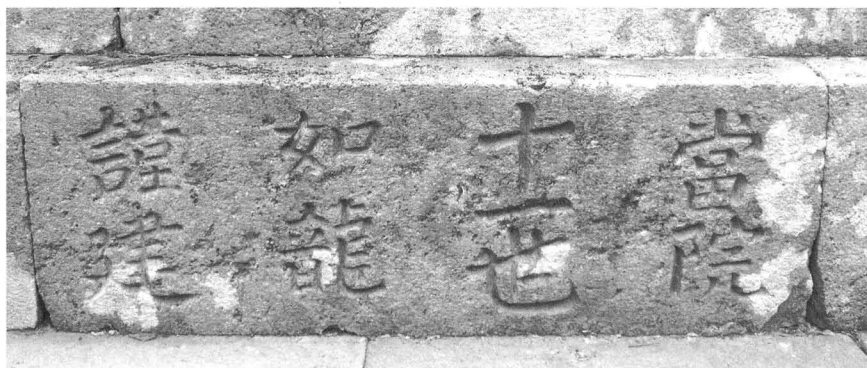 當院
十一世
如龍
謹建